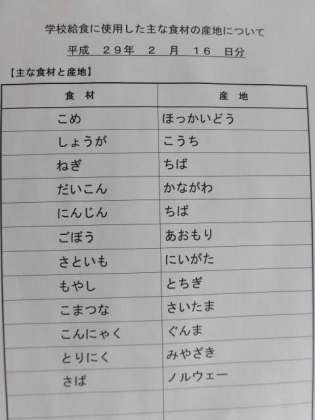 学校給食に使用した主な食材の産地について
平成 29年 2 月 16 日分
【主な食材と産地】
食 材 産 地
こめ ほっかいどう
しょうが こうち
ねぎ ちば
だいこん かながわ
にんじん ちば
ごぼう あおもり
さといも にいがた
もやし とちぎ
こまつな さいたま
こんにゃく ぐんま
とりにく みやざき
さば ノルウェー